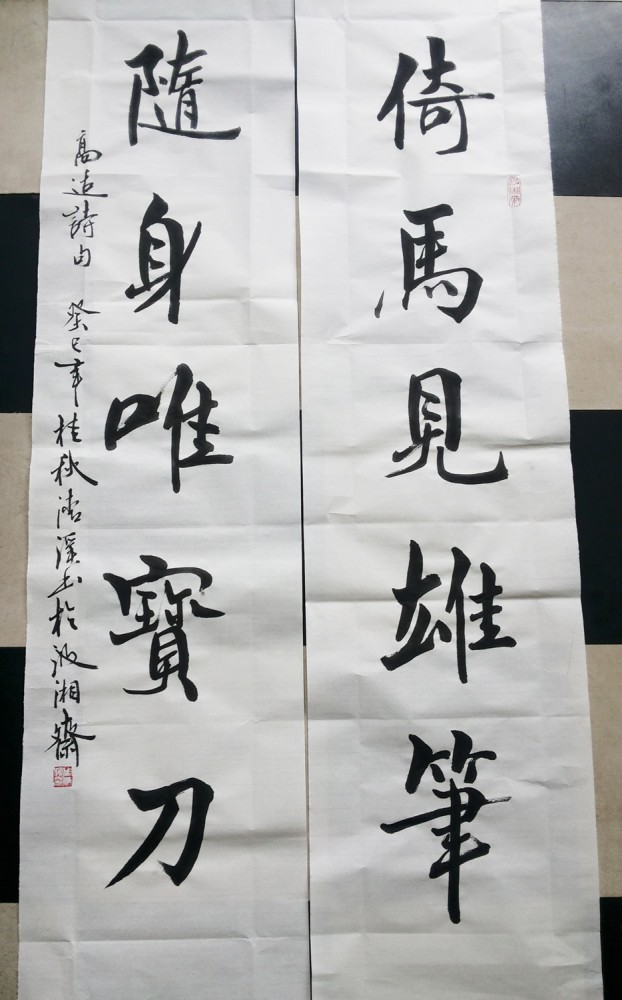 倚馬見雄筆
隨身唯寶刀
高适詩句 癸巳年桂秋浩溪书於汲湘齋